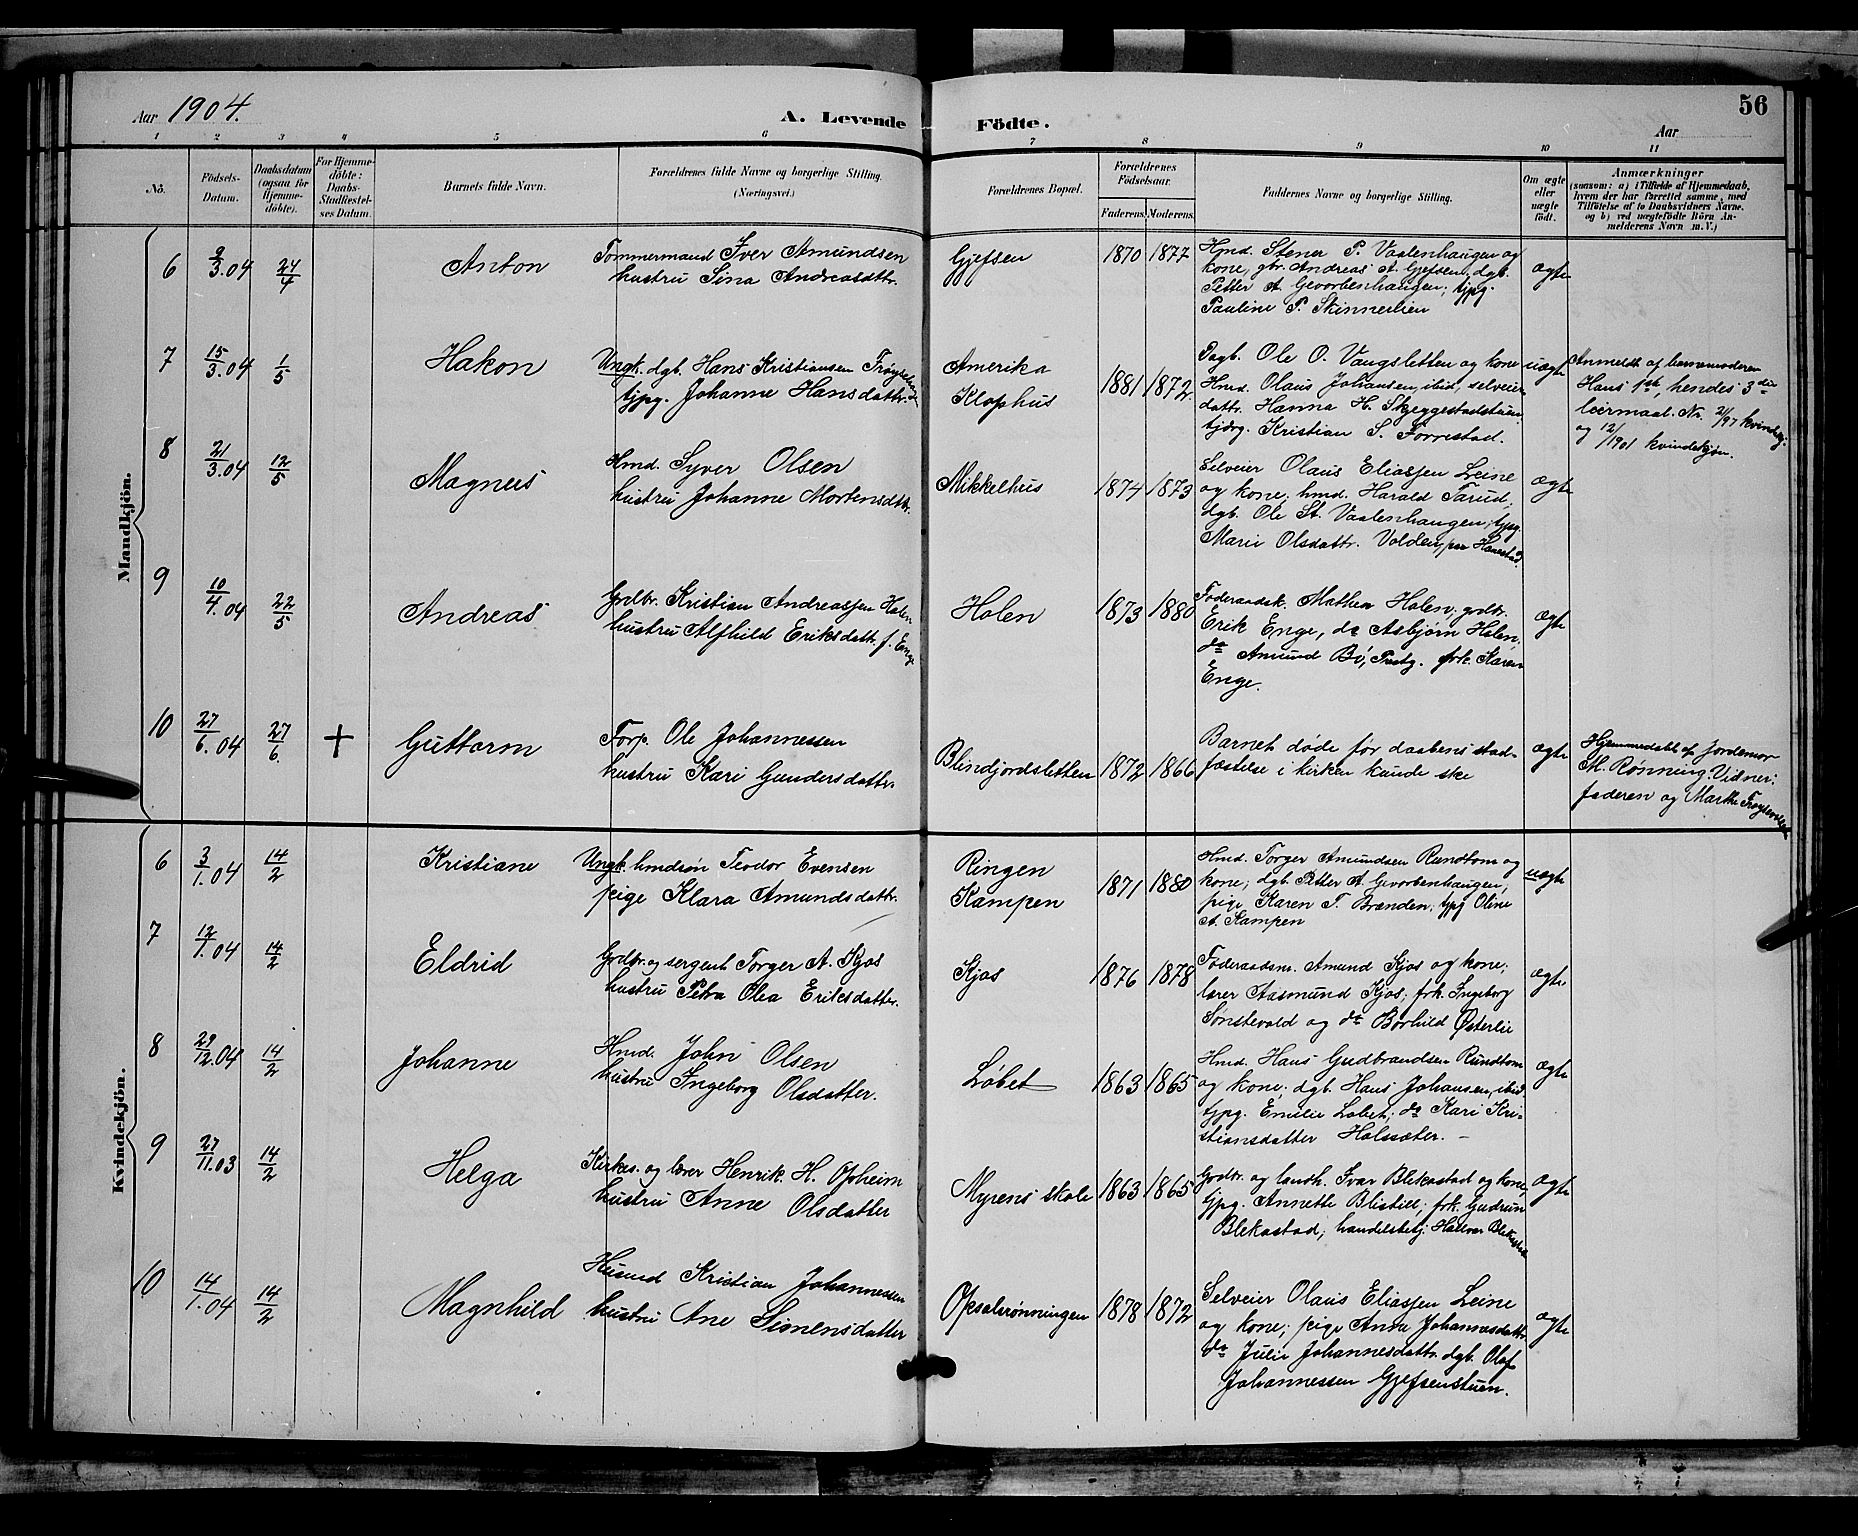 Aar 1904. A. Levende Födte. Aar 56
1 2 3 4 5 6 7 8 9 10 11
No.
Födsels-
Datum.
Daabsdatum
(ogsaa for
Hjemme-
döbte).
For Hjemme-
döbte:
Daabs-
Stadfæstel-
ses Datum.
Barnets fulde Navn.
Forældrenes fulde Navne og borgerlige Stilling
(Næringsvei.)
Forældrenes Bopæl.
Forældrenes
Födselsaar.
Faderens. Moderens.
Faddernes Navne og borgerlige Stilling.
Om ægte
eller
uægte
födt.
Anmærkninger
(saasom: a) i Tilfælde af Hjemmedaab,
hvem der har forrettet samme, med
Tilföielse af to Daabsvidners Navne.
og b) ved uægtefödte Börn An-
melderens Navn m. V.)
Mandkjön.
6 9/3.04 24/4 Anton
Tommermand Iver Amundsen
hustru Sina Andreasdttr.
Gjefsen 1870 1877
Hmd. Stener P. Vaalenhaugen og
kone, gbr. Andreas A. Gjefsen, dgb.
Petter A. Gevorbenhaugen; tjpg.
Pauline P. Skinnerlien
ægte
7 15/3.04 1/5 Hakon
Ungk. dgb. Hans Kristiansen
tjpg. Johanne Hansdatter.
Amerika
Klophus 1881 1872
Dagb. Ole O. Vangsletten og kone
Hmd. Olaus Johansen, ibid, selveier
dattr. Hanna H. Skjeggestadstuen,
Kristian S. Forrestad.
uægte
Anmeldt af barnemoderen
Hans 1ste, hendes 3die
leiermaal. No. 2/97 kvindekj.
og 12/1901 kvindekjøn.
8 21/3.04 12/5 Magnus
Hmd. Syver Olsen
hustru Johanne Mortensdttr.
Mikkelhus 1874 1873
Selveier Olaus Eliassen Leine
og kone, hmd. Harald Tarud,
dgb. Ole St. Vaalenhaugen, tjpg.
Marie Olsdattr. Volden,
ægte
9 10/4.04 22/5 Andreas
Grdbr. Kristian Andreassen Holen
hustru Alfhild Eriksdattr. f. Enge
Holen 1873 1880
Føderaadsk. Mathea Holen, grdbr.
Erik Enge, do Asbjørn Holen,
do Amund Bø, frk. Karen
Enge.
ægte
10 27/6.04 27/6. + Guttorm
Torp. Ole Johannessen
hustru Kari Gundersdatter.
Blindjordsletten 1872 1866
Barnet døde før daabens stad-
fæstelse i kirken kunde ske
ægte
Hjemmedøbt af Jordemor
M. Rønning. Vidner:
faderen og Marthe
Kvindekjön.
6 3/1.04 14/2 Kristiane
Ungk. hmdsøn Teodor Evensen
pige Klara Amundsdattr.
Ringen
Kampen 1871 1880
Hmd. Torger Amundsen Rundtom og
kone; dgb. Petter A. Gevorbenhaugen,
pige Karen T. Brænden; tjpg Oline
A. Kampen
uægte
7 12/1.04 14/2 Eldrid
Grdbr. og sergent Torger A. Kjos
hustru Petra Olea Eriksdatter.
Kjos 1876 1878
Føderaadsm. Amund Kjos og kone;
lærer Aasmund Kjos; frk. Ingeborg
Sønstevold og do Borhild Østerlie
ægte
8 29/12.04 14/2 Johanne
Hmd. John Olsen
hustru Ingeborg Olsdatter.
Løbet 1863 1865
Hmd. Hans Gudbrandsen Rundtom
og kone; dgb. Hans Johansen, ibid
tjpg. Emilie Løbet; do Kari Kri-
stiansdatter Holssæter. –
ægte
9 27/11.03 14/2 Helga
Kirkes. og lærer Henrik H. Opheim
hustru Anne Olsdatter
Myrens skole 1863 1865
Grdbr. og landh. Ivar Blekastad og kone,
tjpg. Annette Blistill, frk. Gudrun
Blekastad, handelsbetj. Hallvar Blekastad
ægte
10 14/1.04 14/2 Magnhild
Husmd Kristian Johannessen
hustru Ane Simensdatter
Opsalrønningen 1878 1872
Selveier Olaus Eliassen Leine
og kone; pige Anna Johannesdattr.
do Julie Johannesdattr. dgb. Olaf
Johannessen Gjefsenstuen.
ægte